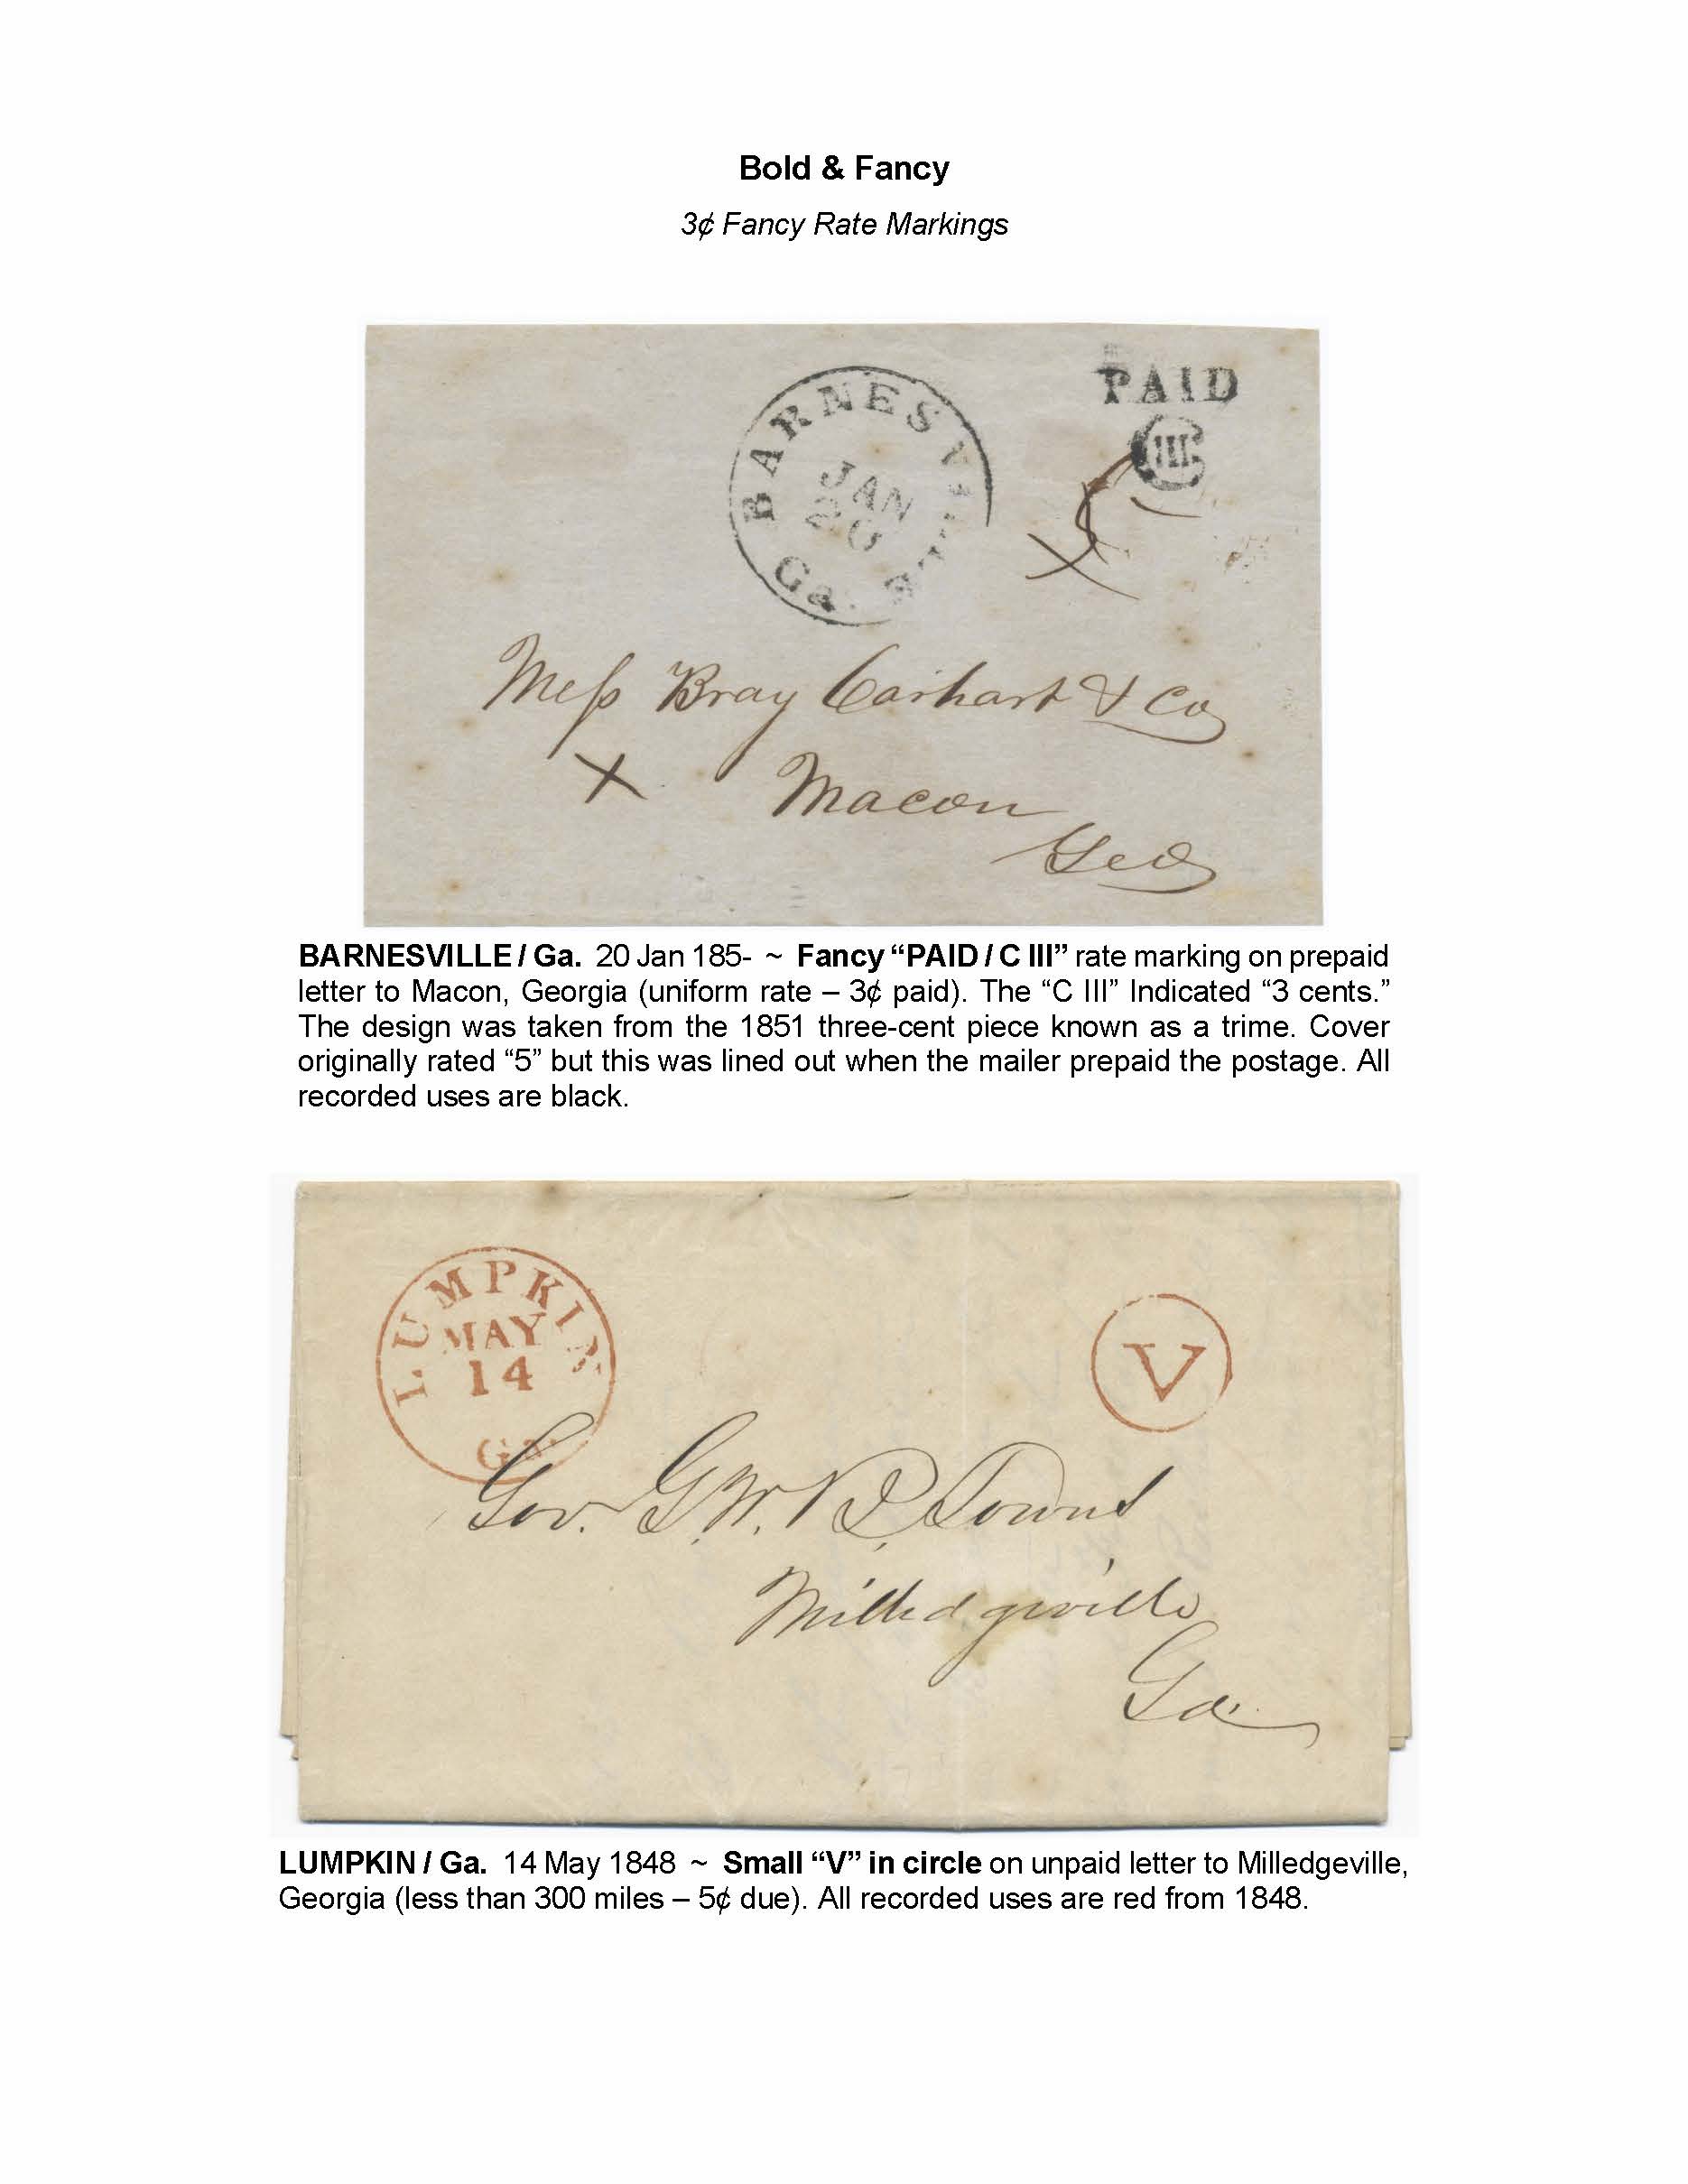 Bold & Fancy
3¢ Fancy Rate Markings
BARNESVILLE
Ga.
JAN
20
PAID
C III
5
Mess Bray Carhart & Co
X Macon
Geo
BARNESVILLE / Ga. 20 Jan 185- ~ Fancy “PAID / C III” rate marking on prepaid
letter to Macon, Georgia (uniform rate – 3¢ paid). The “C III” Indicated “3 cents.”
The design was taken from the 1851 three-cent piece known as a trime. Cover
originally rated “5” but this was lined out when the mailer prepaid the postage. All
recorded uses are black.
LUMPKIN
MAY
14
Ga.
V
Gov. G. W. B. Towns
Milledgeville
Ga.
LUMPKIN / Ga. 14 May 1848 ~ Small “V” in circle on unpaid letter to Milledgeville,
Georgia (less than 300 miles – 5¢ due). All recorded uses are red from 1848.